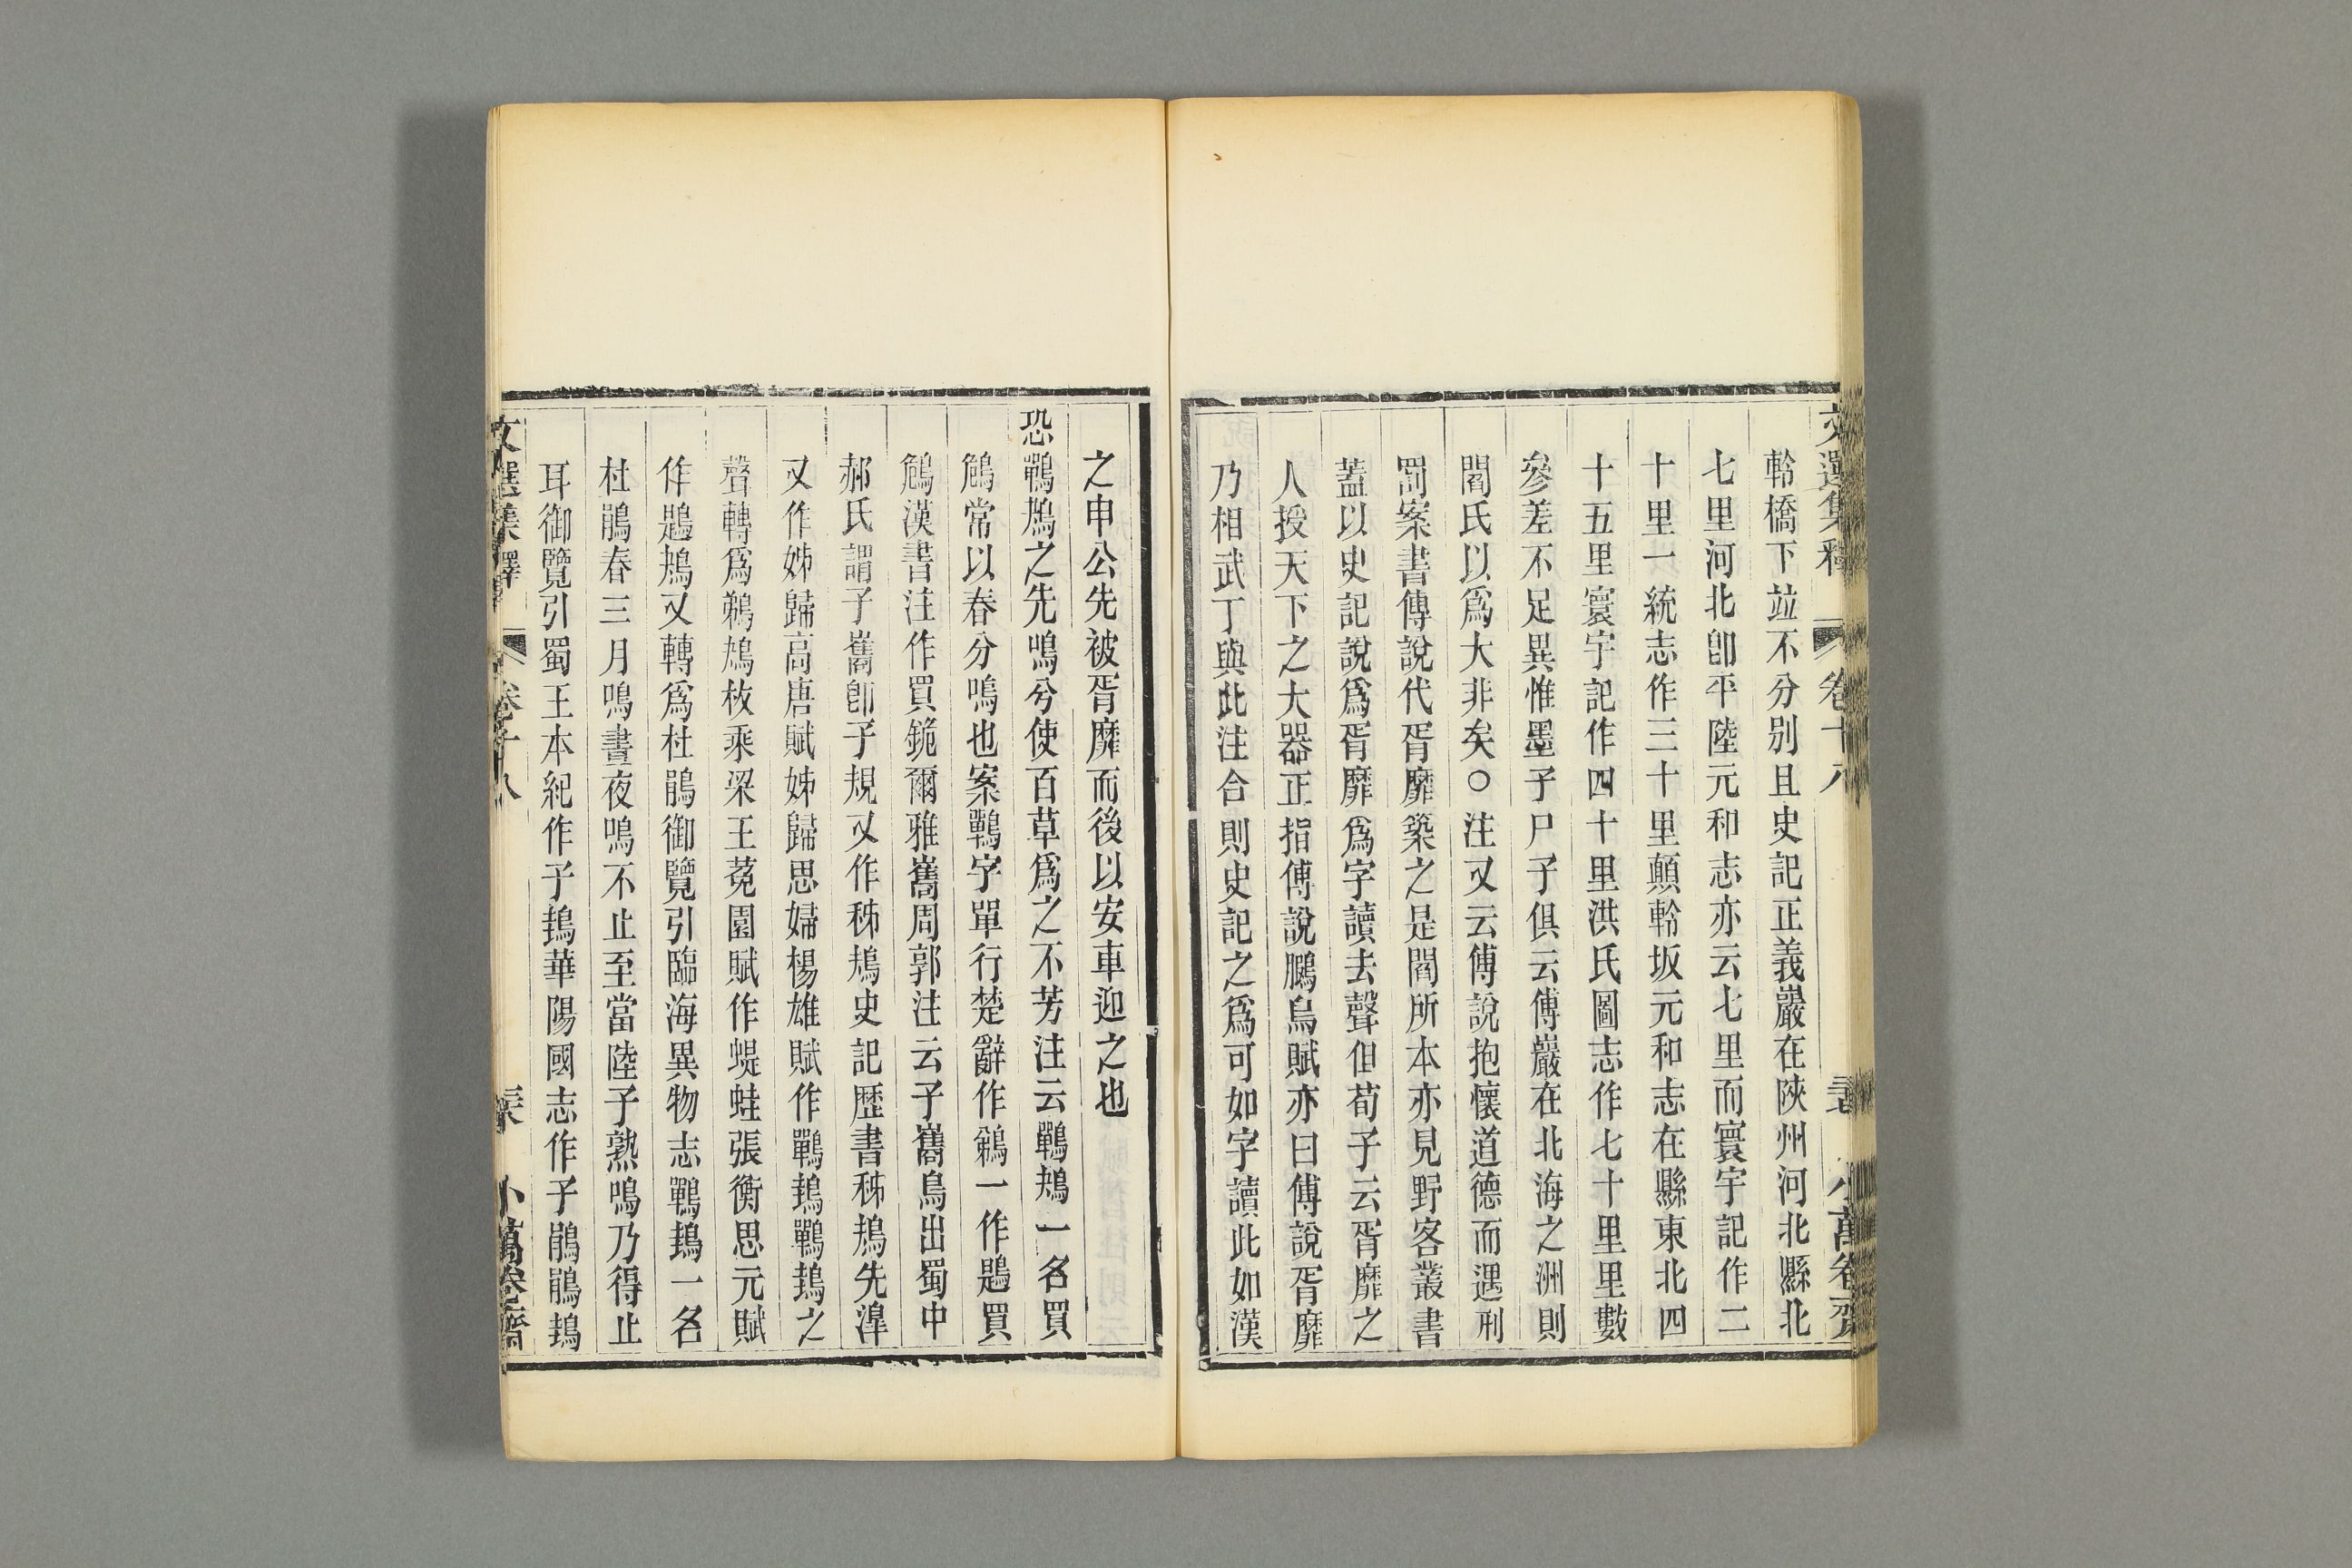 文選集釋 卷十八 小萬卷齋
軨橋下竝不分別且史記正義巖在陝州河北縣北
七里河北卽平陸元和志亦云七里而寰宇記作二
十里一統志作三十里顛軨坂元和志在縣東北四
十五里寰宇記作四十里洪氏圖志作七十里里數
參差不足異惟墨子尸子俱云傅巖在北海之洲則
閻氏以爲大非矣○注又云傅說抱懷道德而遇刑
罰案書傳說代胥靡築之是閻所本亦見野客叢書
蓋以史記說爲胥靡爲字讀去聲但荀子云胥靡之
人授天下之大器正指傅說鵩鳥賦亦曰傅說胥靡
乃相武丁與此注合則史記之爲可如字讀此如漢
之申公先被胥靡而後以安車迎之也
恐鷤鴂之先鳴兮使百草爲之不芳注云鷤鴂一名買
鵤常以春分鳴也案鷤字單行楚辭作鵜一作鶗買
鵤漢書注作買鎞爾雅巂周郭注云子巂鳥出蜀中
郝氏謂子巂卽子規又作秭鳺史記歷書秭鳺先滜
又作姊歸高唐賦姊歸思婦楊雄賦作鷤䳏鷤䳏之
聲轉爲鶙鴂枚乘梁王菟園賦作蝭蛙張衡思元賦
作鶗鴂又轉爲杜鵑御覽引臨海異物志鷤䳏一名
杜鵑春三月鳴晝夜鳴不止至當陸子熟鳴乃得止
耳御覽引蜀王本紀作子䳏華陽國志作子鵑鵑䳏
文選集釋 卷十八 小萬卷齋